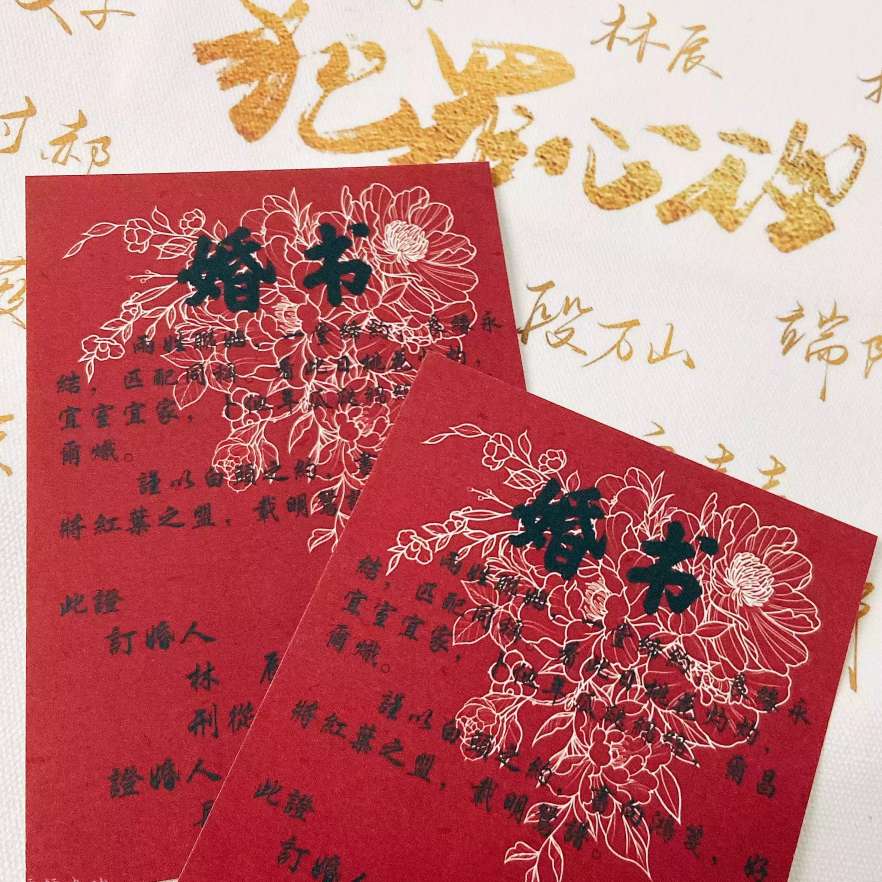 犯罪心理
林辰
郝
段万山
端
婚书
兩姓聯姻，一堂締約，良緣永
結，匹配同稱。看此日桃花灼灼，
宜室宜家，卜他年瓜瓞綿綿
爾熾。
謹以白頭之約，書
將紅葉之盟，載明鴛譜
此證
訂婚人
林 辰
刑從
證婚人
婚书
兩姓聯姻，一堂締約，良緣永
結，匹配同稱。看此日桃花灼灼，
宜室宜家，卜他年瓜瓞綿綿，爾昌
爾熾。
謹以白頭之約，書向鴻箋，好
將紅葉之盟，載明鴛譜。
此證
訂婚